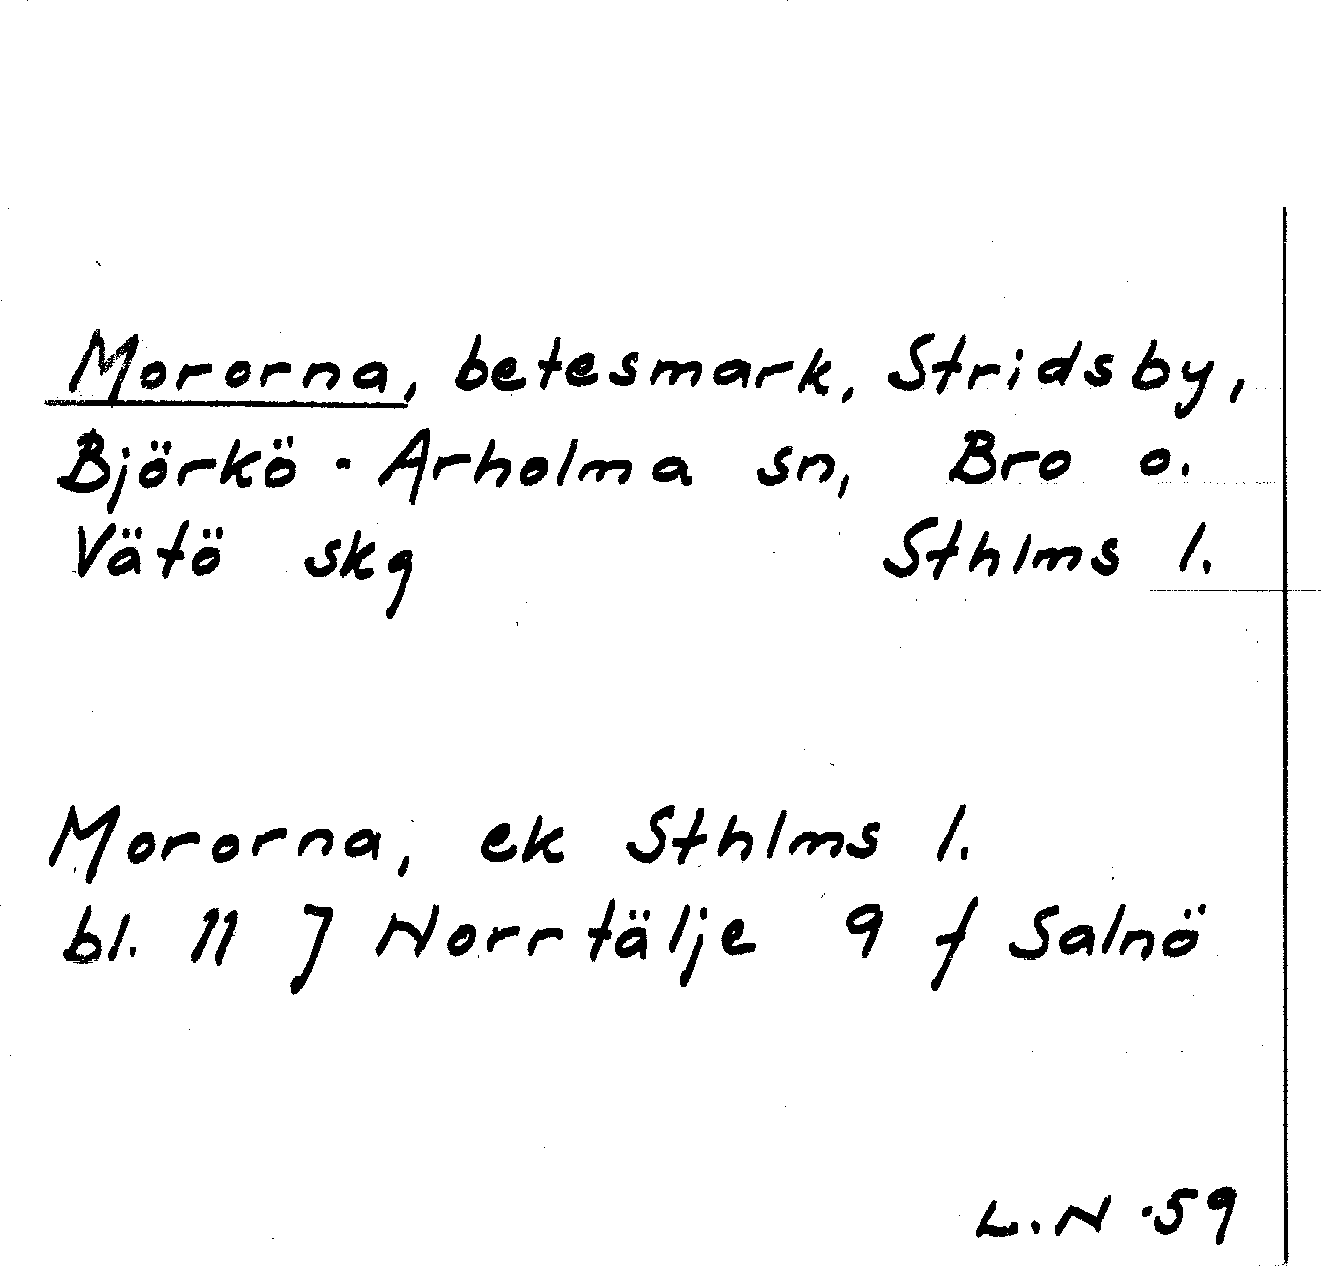 Mororna, betesmark, Stridsby,
Björkö-Arholma sn, Bro o.
Vätö skg Sthlms l.
Mororna, ek Sthlms l.
bl. 11 J Norrtälje 9 f Salnö
L.N -59